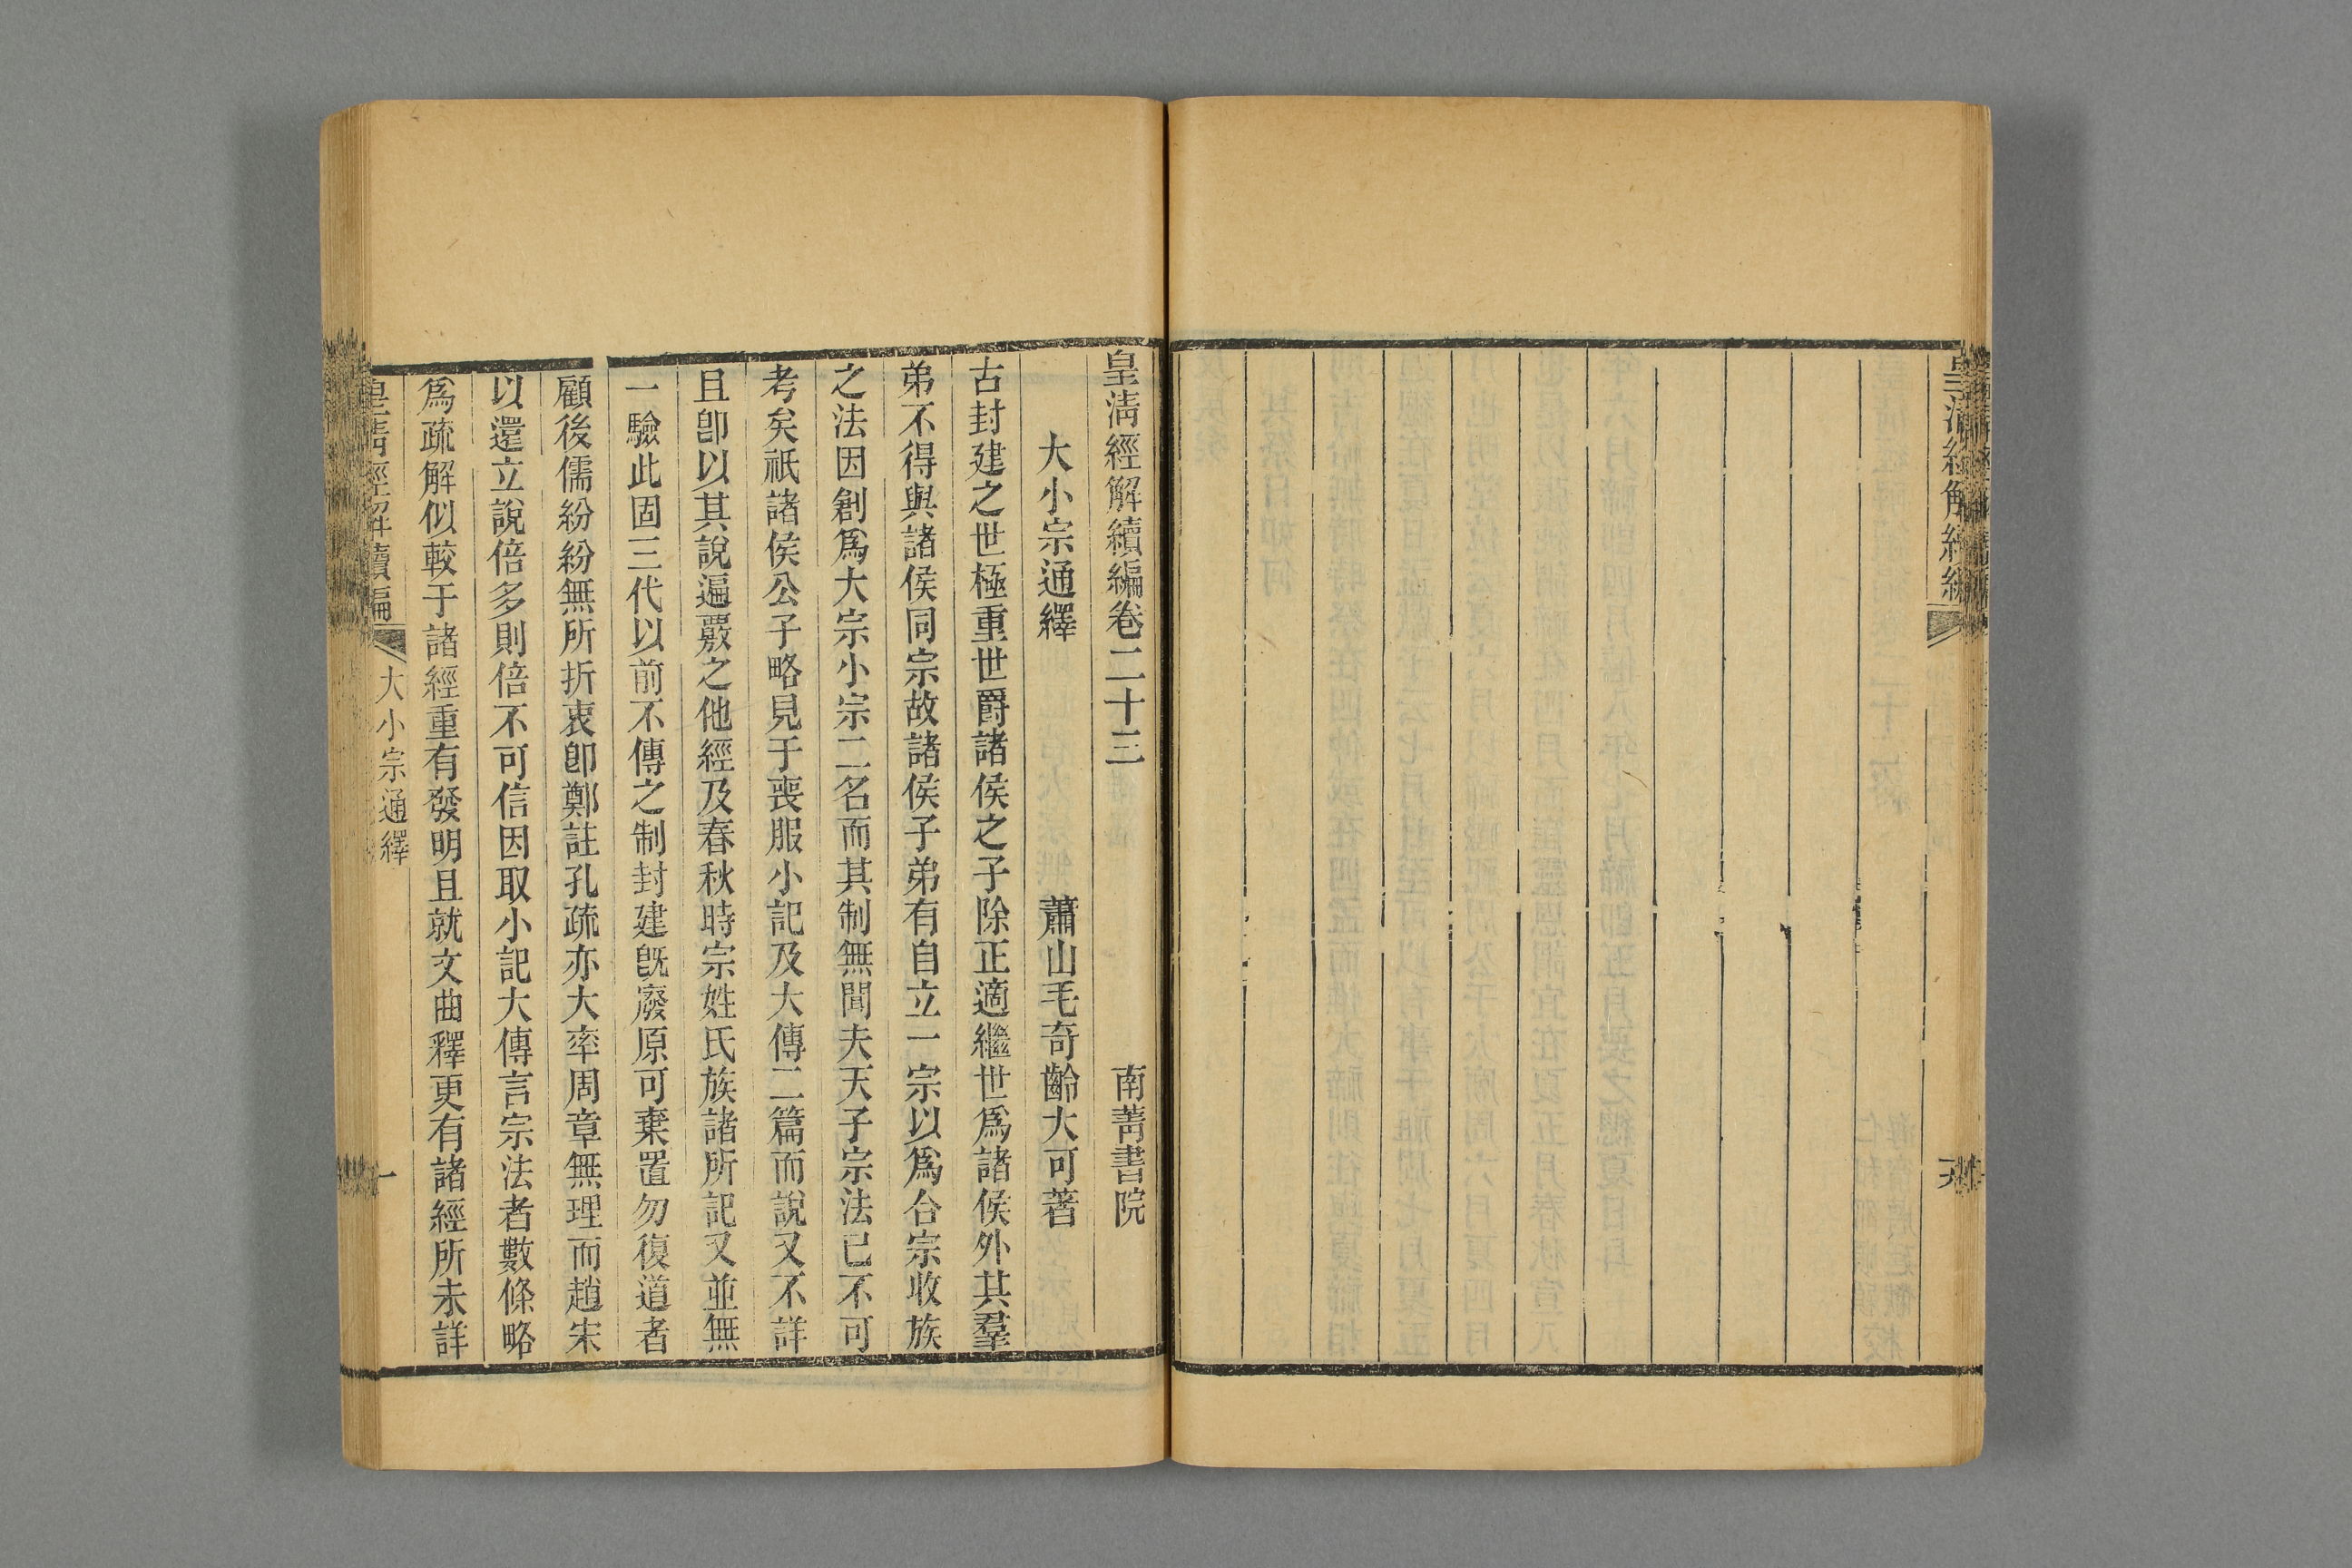 皇清經解續編
皇清經解續編卷二十三 南菁書院
大小宗通繹 蕭山毛奇齡大可著
古封建之世極重世爵諸侯之子除正適繼世爲諸侯外其羣
弟不得與諸侯同宗故諸侯子弟有自立一宗以爲合宗收族
之法因創爲大宗小宗二名而其制無聞夫天子宗法已不可
考矣祇諸侯公子略見于喪服小記及大傳二篇而說又不詳
且卽以其說遍覈之他經及春秋時宗姓氏族諸所記又並無
一驗此固三代以前不傳之制封建旣廢原可棄置勿復道者
顧後儒紛紛無所折衷卽鄭註孔疏亦大率周章無理而趙宋
以還立說倍多則倍不可信因取小記大傳言宗法者數條略
爲疏解似較于諸經重有發明且就文曲釋更有諸經所未詳
皇清經解續編 大小宗通繹 一